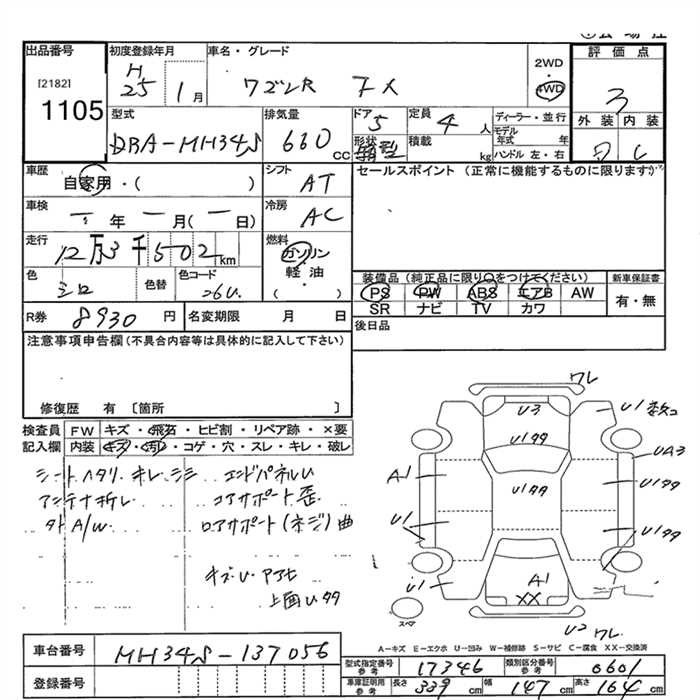 出品番号
[2182]
1105
初度登録年月
H
25 1月
車名・グレード
ワゴンR FX
2WD
4WD
評価点
3
外装 内装
C
型式
DBA-MH34S
排気量
660
CC
ドア
5
形状
箱型
定員
4人
積載
kg
ディーラー・並行
モデル
年式 年
ハンドル 左・右
車歴
自家用・( )
シフト
AT
セールスポイント (正常に機能するものに限ります)
車検
年 月( 日)
冷房
AC
走行
12万3千502km
燃料
ガソリン
軽油
・
( )
色
シロ
色替
色コード
26U
装備品(純正品に限り○をつけてください)
PS PW ABS エアB AW
SR ナビ TV カワ
新車保証書
有・無
R券 8930 円
名変期限 月 日
後日品
注意事項申告欄(不具合内容等は具体的に記入して下さい)
修復歴 有 〔箇所 〕
検査員 FW キズ・飛石・ヒビ割・リペア跡・×要
記入欄 内装 キズ・汚れ・コゲ・穴・スレ・キレ・破レ
シートハタリ キレ シミ エンドパネルU
アンテナ折レ コアサポート歪
外A/W ロアサポート(ネジ)曲
キズU アアヒ
上画Uタタ
ワレ
U3
U1タタ
U1 数コ
UA3
A1
U1タタ
U1タタ
U1
U1タタ
U1
A1
XX
スペア
U2 ワレ
A-キズ E-エクボ U-凹み W-補修跡 S-サビ C-腐食 XX-交換済
車台番号 MH34S-137056
登録番号
型式指定番号
参考
17346
類別区分番号
参考
0601
車庫証明用
参考
長さ 339 cm 幅 147 cm 高さ 164 cm